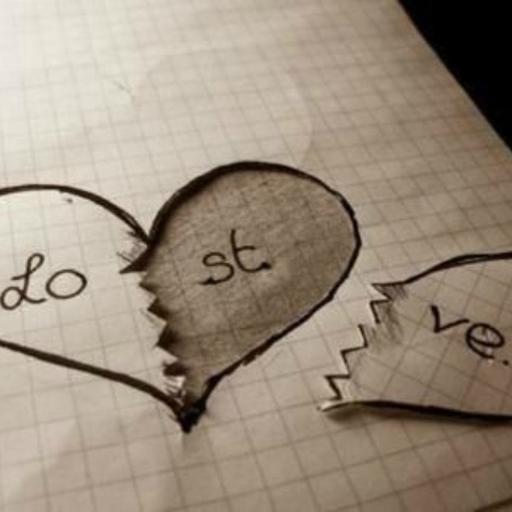 Lo st ve.